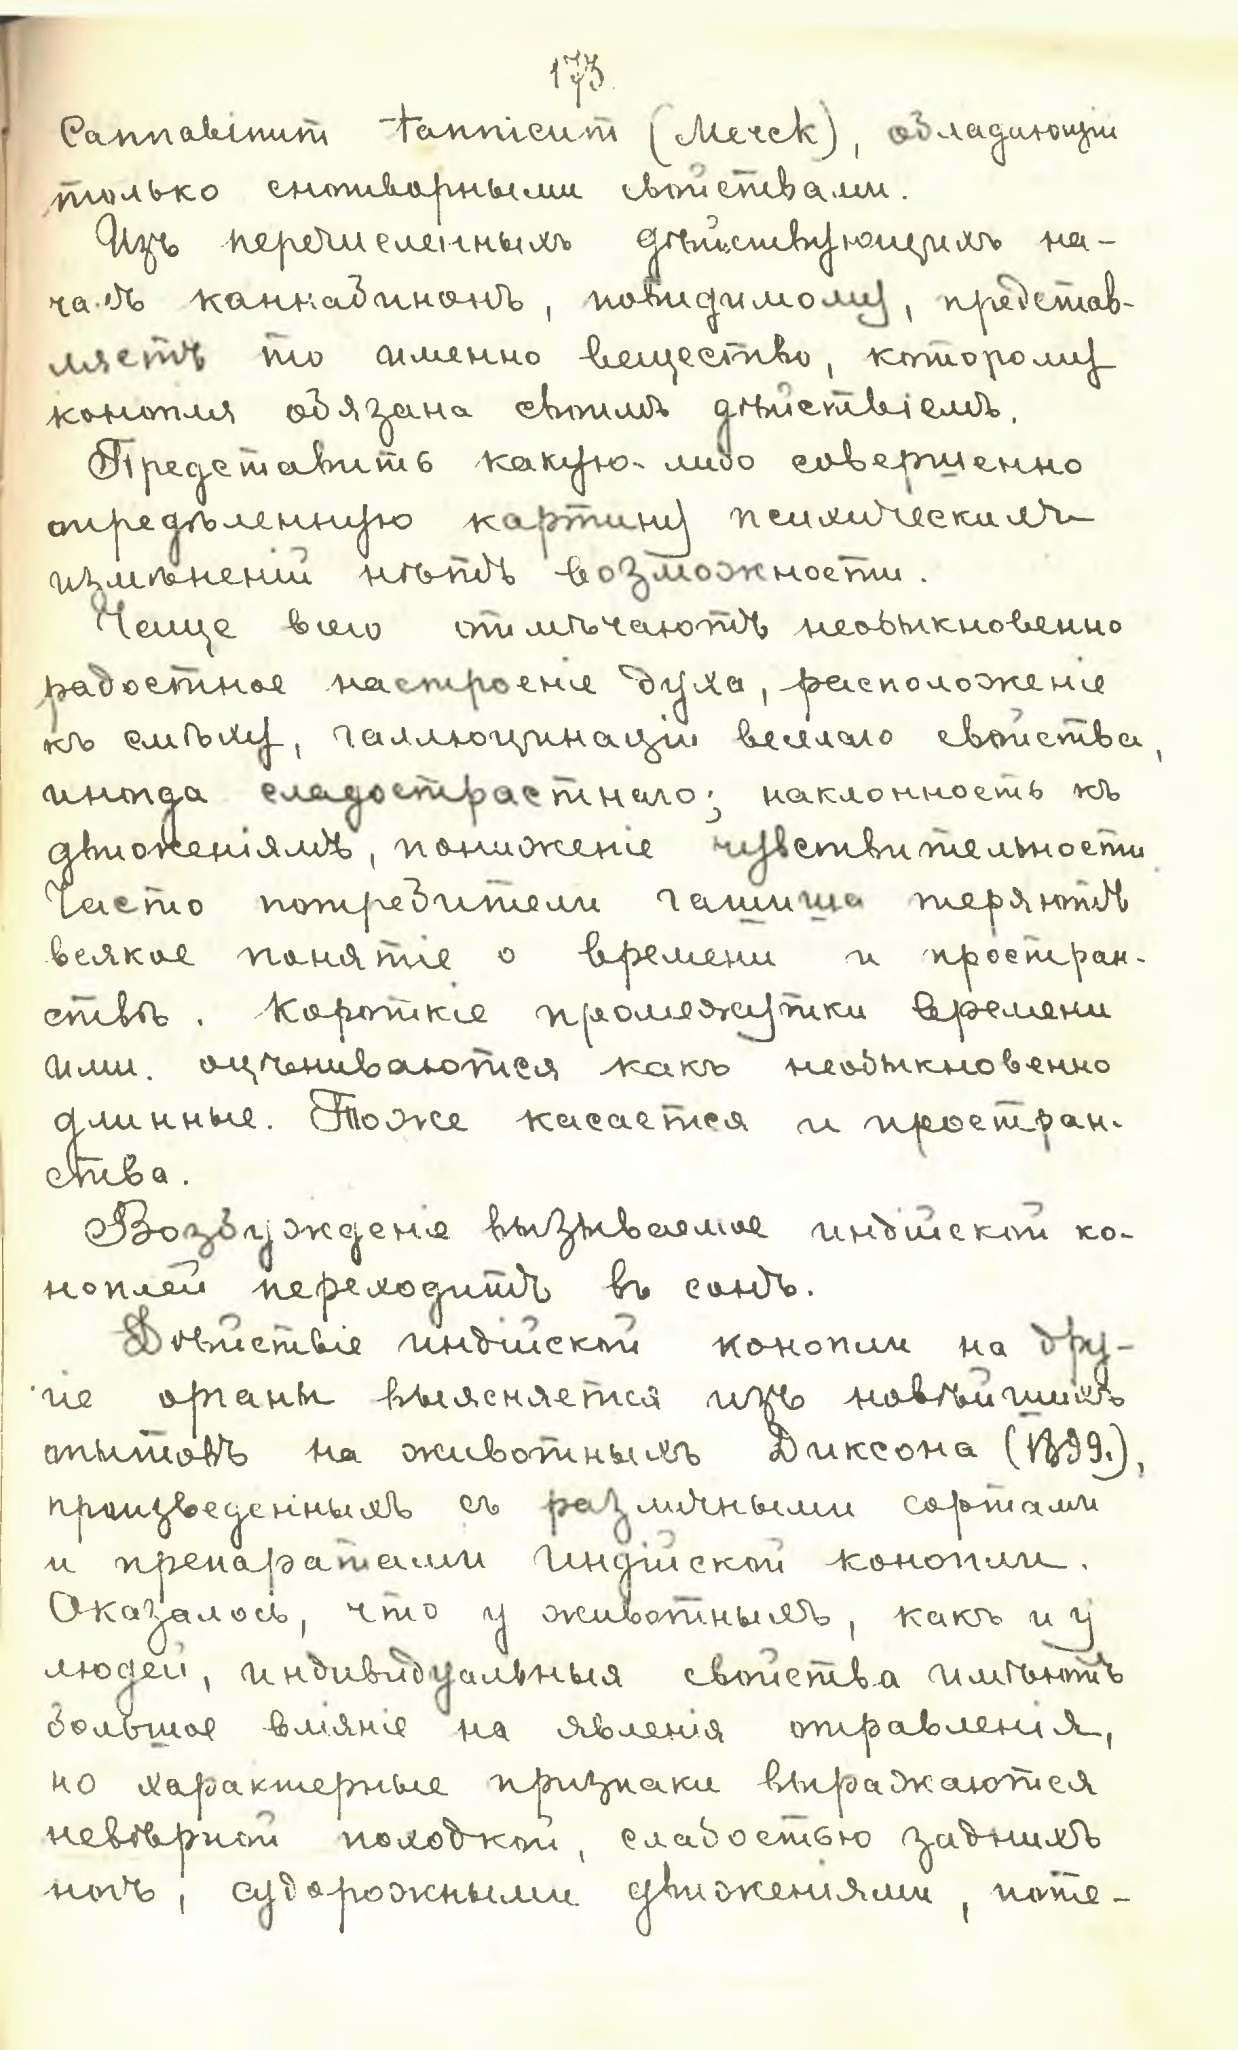 173
Cannabinum tannicum (Мечск), обладающій
только снотворными свойствами.
Изъ перечисленныхъ дѣйствующихъ на-
чалъ каннабинонъ, повидимому, представ-
ляетъ то именно вещество, которому
конопля обязана своимъ дѣйствіемъ.
Представить какую-либо совершенно
опредѣленную картину психическихъ
измѣненій нѣтъ возможности.
Чаще всего отмѣчаютъ необыкновенно
радостное настроеніе духа, расположеніе
къ смѣху, галлюцинаціи веселаго свойства,
иногда сладострастнаго; наклонность къ
движеніямъ, пониженіе чувствительности.
Часто потребители гашиша теряютъ
всякое понятіе о времени и простран-
ствѣ. Короткіе промежутки времени
ими оцѣниваются какъ необыкновенно
длинные. Тоже касается и простран-
ства.
Возбужденіе вызываемое индійской ко-
ноплей переходитъ въ сонъ.
Дѣйствіе индійской конопли на дру-
гіе органы выясняется изъ новѣйшихъ
опытовъ на животныхъ Диксона (1899.),
произведенныхъ съ различными сортами
и препаратами индійской конопли.
Оказалось, что у животныхъ, какъ и у
людей, индивидуальныя свойства имѣютъ
большое вліяніе на явленія отравленія,
но характерные признаки выражаются
невѣрной походкой, слабостью заднихъ
ногъ, судорожными движеніями, поте-